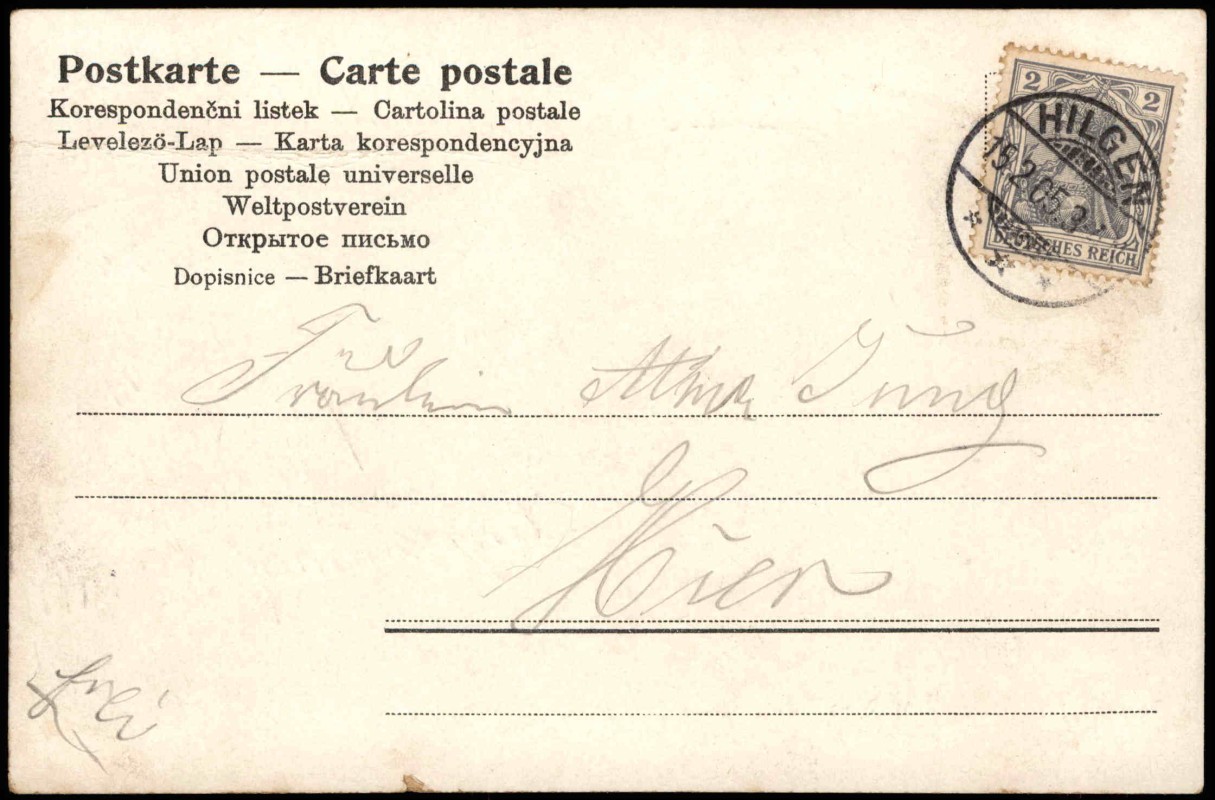 Postkarte — Carte postale
Korespondenčni listek — Cartolina postale
Levelezö-Lap — Karta korespondencyjna
Union postale universelle
Weltpostverein
Открытое письмо
Dopisnice — Briefkaart
2 2
HILGEN
15.2.05.
DEUTSCHES REICH
Fräulein Alma Jung
Hier